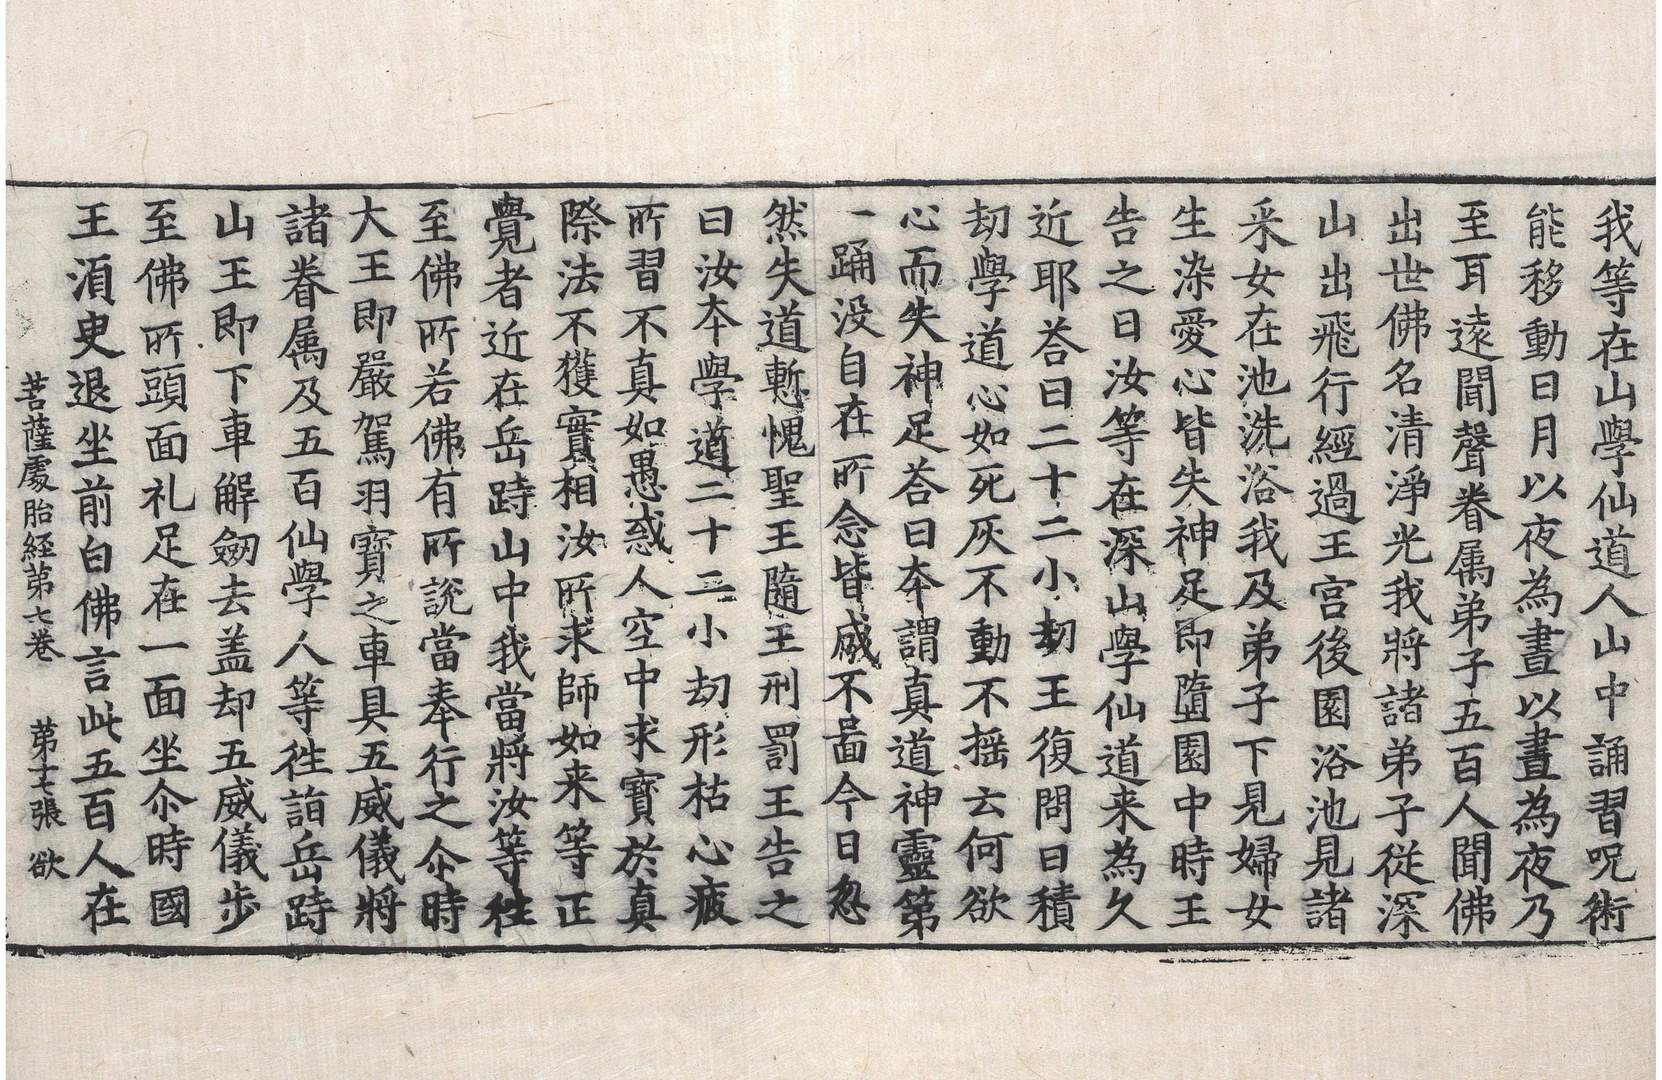 我等在山學仙道人山中誦習呪術
能移動日月以夜為晝以晝為夜乃
至耳遠聞聲眷属弟子五百人聞佛
出世佛名清淨光我將諸弟子從深
山出飛行經過王宮後園浴池見諸
采女在池洗浴我及弟子下見婦女
生染愛心皆失神足即墮園中時王
告之曰汝等在深山學仙道来為久
近耶荅曰二十二小劫王復問曰積
劫學道心如死灰不動不揺云何欲
心而失神足荅曰夲謂真道神靈第
一踊没自在所念皆感不啚今日忽
然失道慙愧聖王隨王刑罰王告之
曰汝夲學道二十二小劫形枯心疲
所習不真如愚惑人空中求寶於真
際法不獲實相汝所求師如来等正
覺者近在岳跱山中我當將汝等徃
至佛所若佛有所說當奉行之尒時
大王即嚴駕羽寶之車具五威儀將
諸眷属及五百仙學人等徃詣岳跱
山王即下車解劒去盖却五威儀步
至佛所頭面礼足在一面坐尒時國
王湏臾退坐前白佛言此五百人在
菩薩處胎経苐七巻　苐十七張　欲